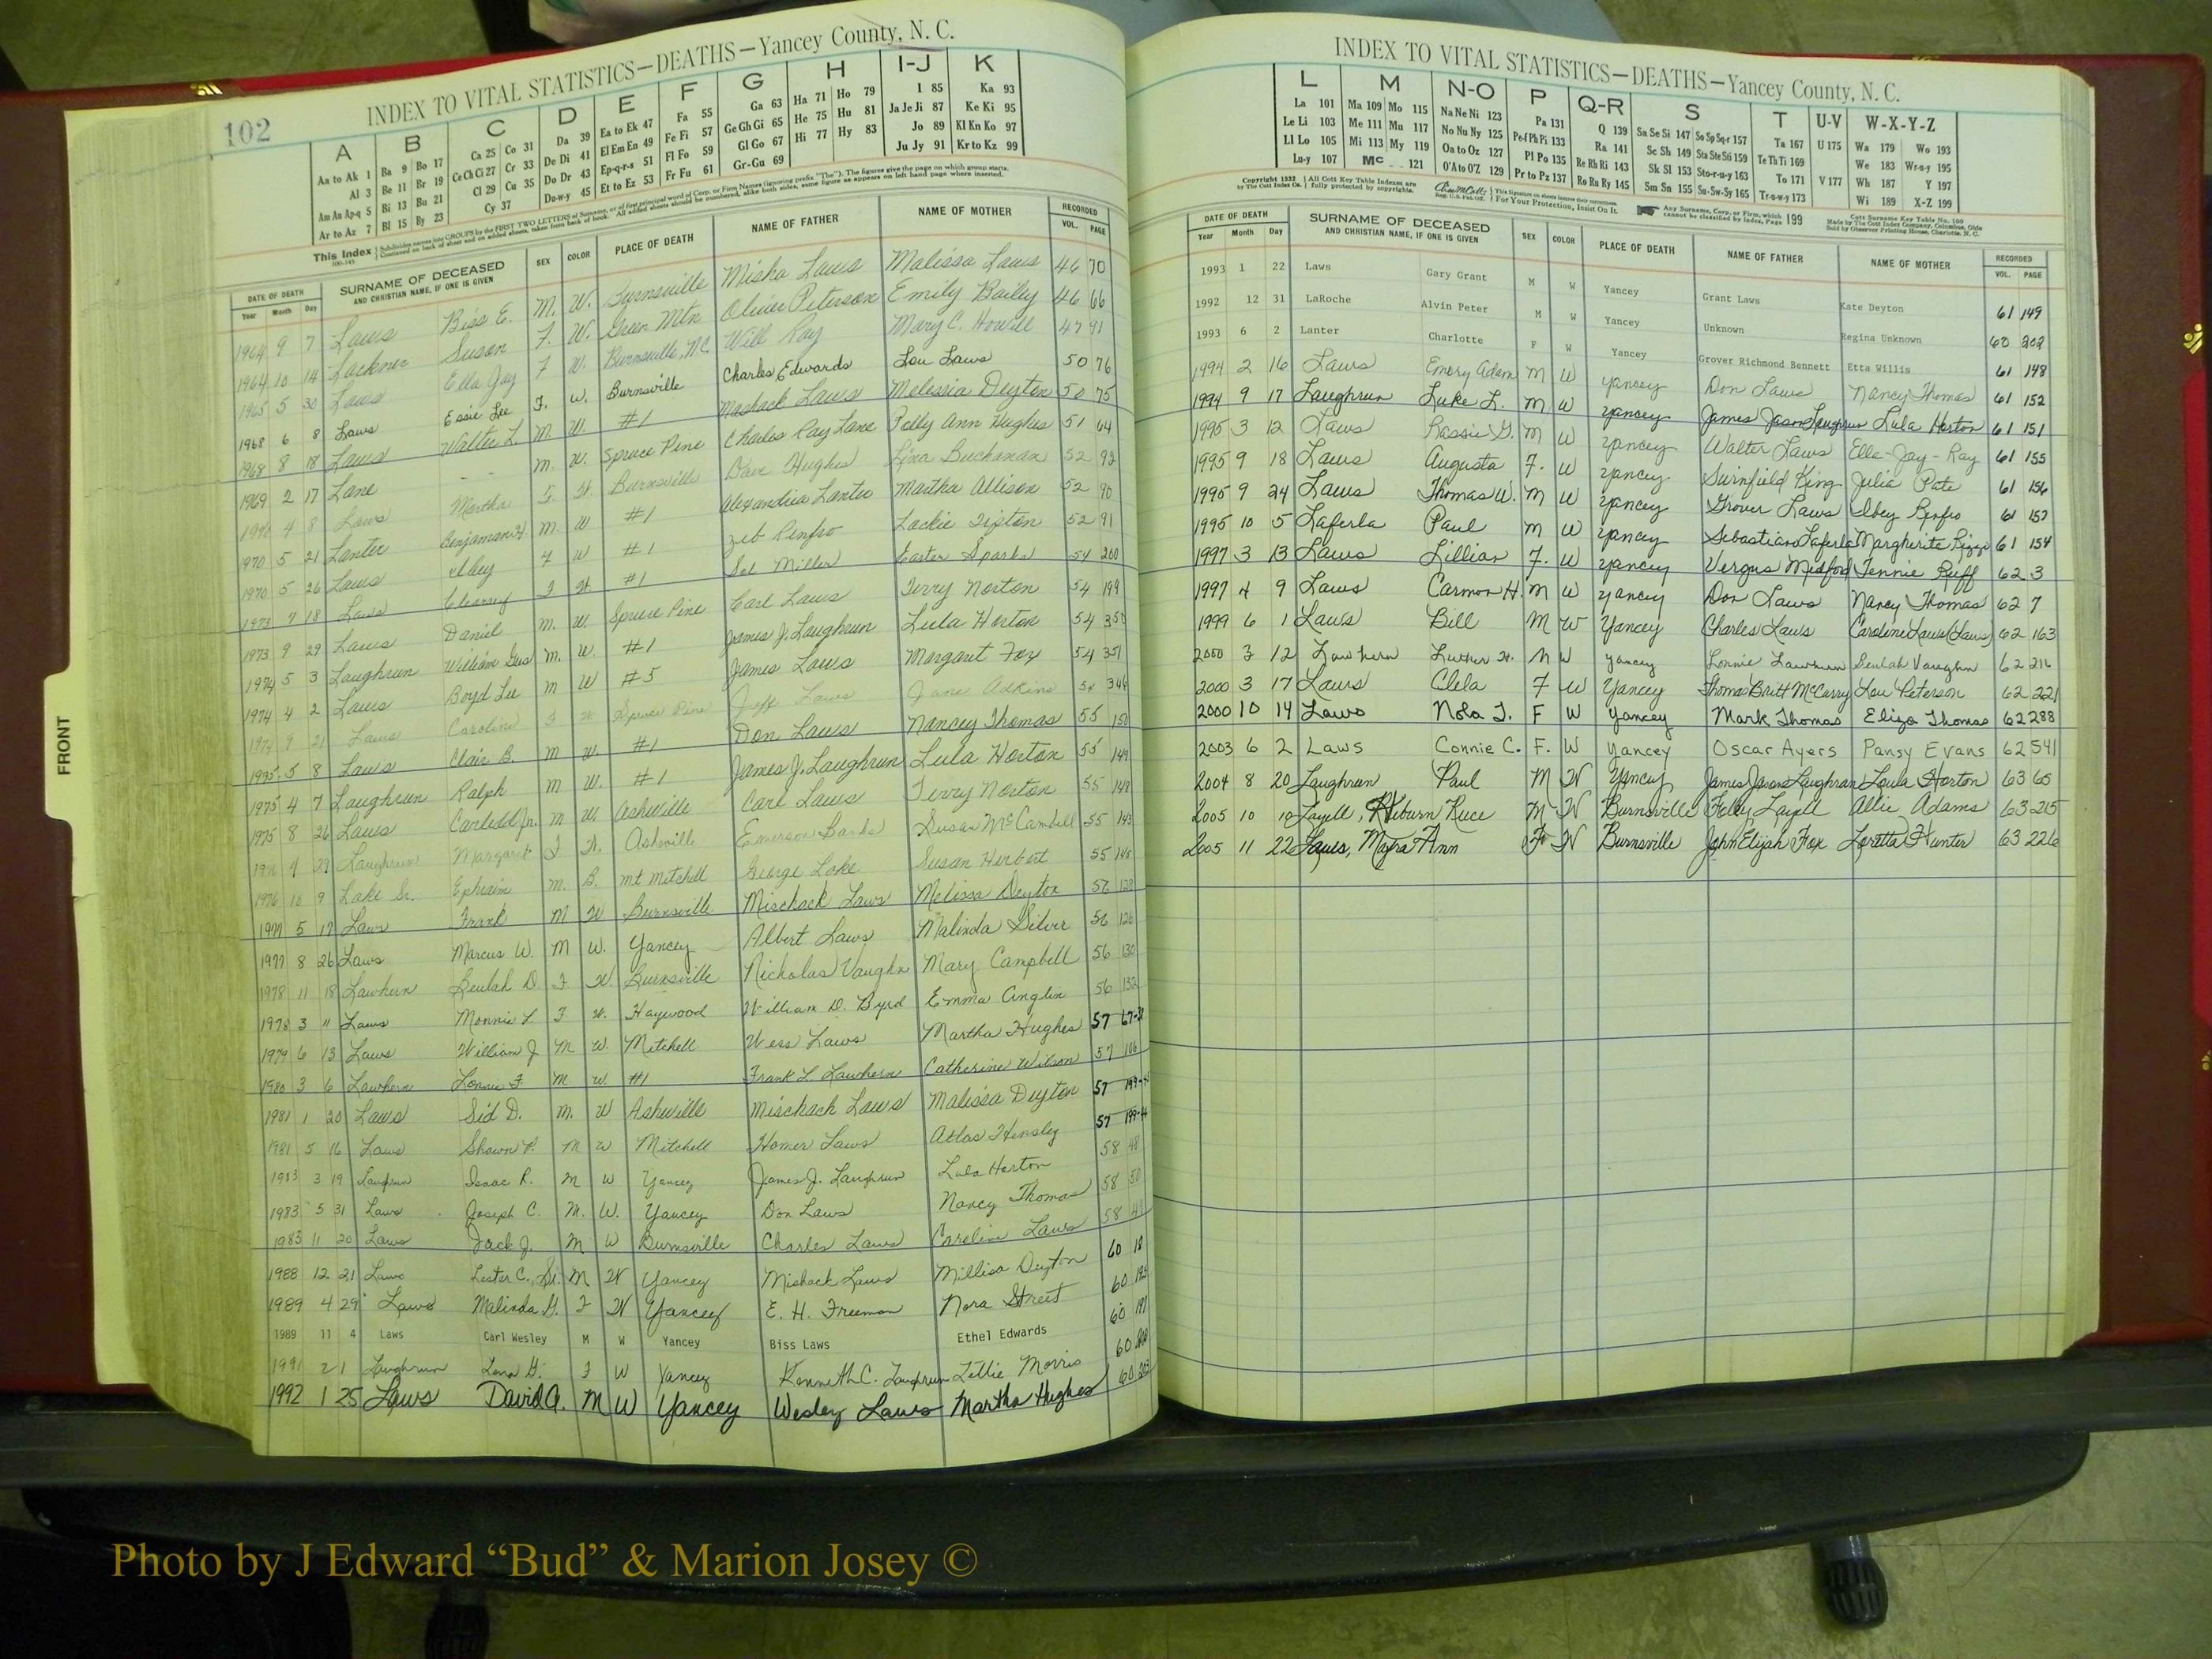 102
INDEX TO VITAL STATISTICS—DEATHS—Yancey County, N. C.
A B C D E F G H I-J K
Aa to Ak 1 Ba 9 Bo 17 Ca 25 Co 31 Da 39 Ea to Ek 47 Fa 55 Ga 63 Ha 71 Ho 79 I 85 Ka 93
Al 3 Be 11 Br 19 Ce Ch Ci 27 Cr 33 De Di 41 El Em En 49 Fe Fi 57 Ge Gh Gi 65 He 75 Hu 81 Ja Je Ji 87 Ke Ki 95
Am An Ap-q 5 Bi 13 Bu 21 Cl 29 Cu 35 Do Dr 43 Ep-q-r-s 51 Fl Fo 59 Gl Go 67 Hi 77 Hy 83 Jo 89 Kl Kn Ko 97
Ar to Az 7 Bl 15 By 23 Cy 37 Du-w-y 45 Et to Ez 53 Fr Fu 61 Gr-Gu 69 Ju Jy 91 Kr to Kz 99
This Index
DATE OF DEATH SURNAME OF DECEASED AND CHRISTIAN NAME, IF ONE IS GIVEN SEX COLOR PLACE OF DEATH NAME OF FATHER NAME OF MOTHER RECORDED
Year Month Day VOL. PAGE
1964 9 7 Laws Biss E. M. W. Burnsville Misha Laws Malissa Laws 46 70
1964 10 14 Lackner Susan F. W. Green Mtn Oliver Peterson Emily Bailey 46 66
1965 5 30 Laws Ella Jay F W. Burnsville, N.C. Will Ray Mary C. Howell 47 91
1968 6 8 Laws Essie Lee F. W. Burnsville Charles Edwards Lou Laws 50 76
1968 8 18 Laws Walter L. M. W. #1 Mashack Laws Melissia Deyton 50 75
1969 2 17 Lane - M. W. Spruce Pine Charles Ray Lane Polly Ann Hughes 51 64
1970 4 8 Laws Martha F. W. Burnsville Dave Hughes Lina Buchanan 52 92
1970 5 21 Lanter Benjaman H M. W #1 Alexandria Lanter Martha Allison 52 90
1970 5 26 Laws Ibbey F W #1 Zeb Renfro Lockie Tipton 52 91
1973 7 18 Laws F W #1 Sol Miller Easter Sparks 54 200
1973 9 29 Laws Daniel M. W. Spruce Pine Carl Laws Terry Norton 54 199
1974 5 3 Laughrun William Gus M. W. #1 James J. Laughrun Lula Horton 54 350
1974 4 2 Laws Boyd Lee M W #5 James Laws Margaret Fox 54 351
1974 9 21 Laws Caroline F W Spruce Pine Jeff Laws Jane Adkins 54 346
1975 5 8 Laws Clair B. M W. #1 Don Laws Nancy Thomas 55 150
1975 4 7 Laughrun Ralph M W. #1 James J. Laughrun Lula Horton 55 149
1975 8 26 Laws Carl Jr. M W. Asheville Carl Laws Terry Norton 55 148
4 29 Laughrun Margaret F W. Asheville Emerson Banks Susan McCambell 55 143
1976 10 9 Lake Sr. Ephraim M. B. Mt Mitchell George Lake Susan Herbert 55 145
1977 5 17 Laws Frank M W Burnsville Mischack Laws Melissa Deyton 56 128
1977 8 26 Laws Marcus W. M W. Yancey Albert Laws Malinda Silver 56 126
1978 11 18 Lawhern Beulah D. F W. Burnsville Nicholas Vaughn Mary Campbell 56 130
1978 3 " Laws Monnie L F W. Haywood William D. Byrd Emma Anglin 56 132
1979 6 13 Laws William J M W. Mitchell Wess Laws Martha Hughes 57 67
1980 3 6 Lawhern Lonnie F. M W #1 Frank L. Lawhern Catherine Wilson 57 106
1981 1 20 Laws Sid D. M. W Asheville Mischack Laws Malissa Deyton 57 199
1981 5 16 Laws Shawn P. M W Mitchell Homer Laws Atlas Hensley 57 199
1983 3 19 Laughrun Isaac R. M W Yancey James J. Laughrun Lula Horton 58 48
1983 5 31 Laws Joseph C. M. W. Yancey Don Laws Nancy Thomas 58 50
1983 11 20 Laws Jack J. M W Burnsville Charles Laws Caroline Laws 58 49
1988 12 21 Laws Lester C., Sr. M W Yancey Mishack Laws Millisa Deyton 60 18
1989 4 29 Laws Malinda H. F W Yancey E. H. Freeman Nora Street 60 192
1989 11 4 Laws Carl Wesley M W Yancey Biss Laws Ethel Edwards 60 191
1991 2 1 Laughrun Lena G. F W Yancey Kenneth C. Laughrun Lillie Morris 60
1992 1 25 Laws David A. M W Yancey Wesley Laws Martha Hughes 60 203
FRONT
INDEX TO VITAL STATISTICS—DEATHS—Yancey County, N. C.
L M N-O P Q-R S T U-V W-X-Y-Z
La 101 Ma 109 Mo 115 Na Ne Ni 123 Pa 131 Q 139 Sa Se Si 147 So Sp Sq-r 157 Ta 167 U 175 Wa 179 Wo 193
Le Li 103 Me 111 Mu 117 No Nu Ny 125 Pe-f Ph Pi 133 Ra 141 Sc Sh 149 Sta Ste Sti 159 Te Th Ti 169 We 183 Wr-u-y 195
Ll Lo 105 Mi 113 My 119 Oa to Oz 127 Pl Po 135 Re Rh Ri 143 Sk Sl 153 Sto-r-u-y 163 To 171 V 177 Wh 187 Y 197
Lu-y 107 Mc 121 O'A to O'Z 129 Pr to Pz 137 Ro Ru Ry 145 Sm Sn 155 Su-Sw-Sy 165 Tr-u-w-y 173 Wi 189 X-Z 199
Copyright 1932 by The Cott Index Co. All Cott Key Table Indexes are fully protected by copyrights. For Your Protection, Insist On It. Any Surname, Corp. or Firm, which cannot be classified by Index, Page 199
DATE OF DEATH SURNAME OF DECEASED AND CHRISTIAN NAME, IF ONE IS GIVEN SEX COLOR PLACE OF DEATH NAME OF FATHER NAME OF MOTHER RECORDED
Year Month Day VOL. PAGE
1993 1 22 Laws Gary Grant M W Yancey Grant Laws Kate Deyton 61 149
1992 12 31 LaRoche Alvin Peter M W Yancey Unknown Regina Unknown 60 202
1993 6 2 Lanter Charlotte F W Yancey Grover Richmond Bennett Etta Willis 61 148
1994 2 16 Laws Emery Adam M W Yancey Don Laws Nancy Thomas 61 152
1994 9 17 Laughrun Luke L. M W Yancey James Jason Laughrun Lula Horton 61 151
1995 3 12 Laws Rassie G. M W Yancey Walter Laws Ella-Jay-Ray 61 155
1995 9 18 Laws Augusta F. W Yancey Swinfield King Julia Pate 61 156
1995 9 24 Laws Thomas W. M W Yancey Grover Laws Ibey Renfro 61 157
1995 10 5 Laferla Paul M W Yancey Sebastiano Laferla Margherita Rizzo 61 154
1997 3 13 Laws Lillian F. W Yancey Vergus Medford Jennie Ruff 62 3
1997 4 9 Laws Carmon H. M W Yancey Don Laws Nancy Thomas 62 7
1999 6 1 Laws Bill M W Yancey Charles Laws Caroline Laws (Laws) 62 163
2000 3 12 Lawhern Luther H. M W Yancey Lonnie Lawhern Beulah Vaughn 62 216
2000 3 17 Laws Clela F W Yancey Thomas Britt McCurry Lou Peterson 62 221
2000 10 14 Laws Nola T. F W Yancey Mark Thomas Eliza Thomas 62 288
2003 6 2 Laws Connie C. F. W Yancey Oscar Ayers Pansy Evans 62 541
2004 8 20 Laughrun Paul M W Yancey James Jason Laughran Loula Horton 63 65
2005 10 10 Layell, Reece M W Burnsville Layell Allie Adams 63 215
2005 11 22 Laws, Ann F W Burnsville John Elijah Fox Loretta Hunter 63 226
Photo by J Edward “Bud” & Marion Josey ©